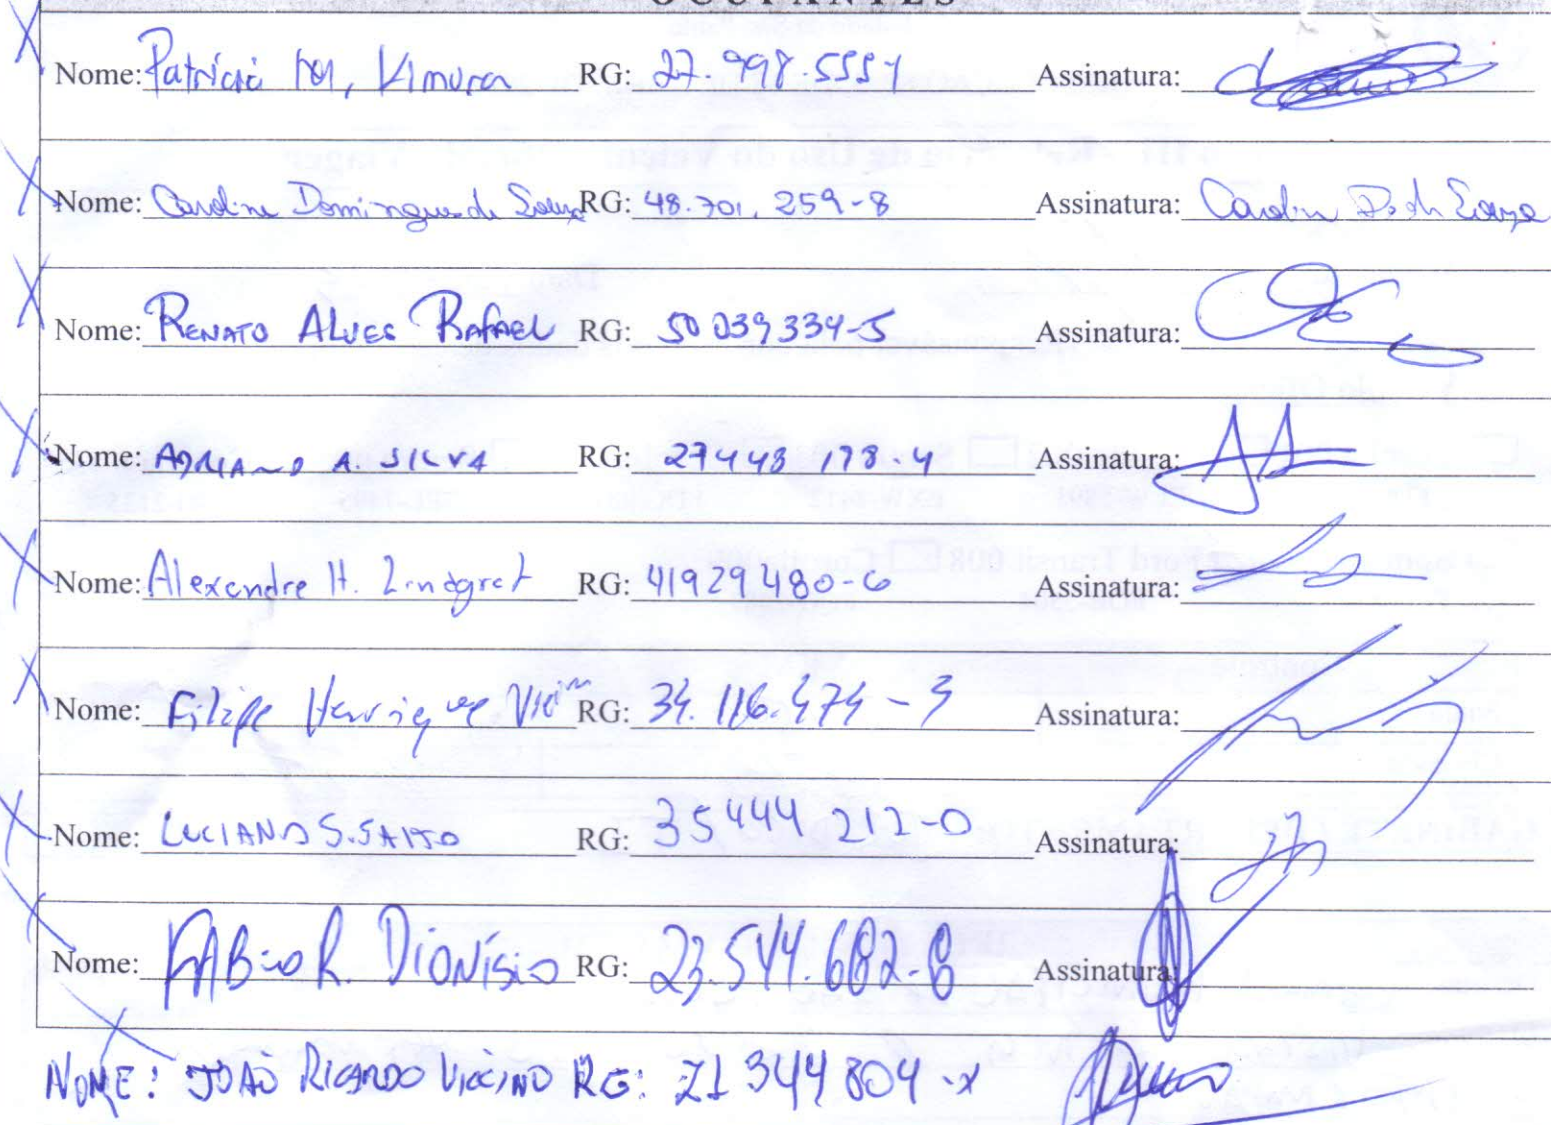 OCUPANTES
Nome: Patricia M. Kimura RG: 27.998.5551 Assinatura:
Nome: Caroline Domingues de Souza RG: 48.701.259-8 Assinatura: Caroline D. de Souza
Nome: RENATO ALVES RAFAEL RG: 50039334-5 Assinatura:
Nome: ADRIANO A. SILVA RG: 27448178-4 Assinatura:
Nome: Alexandre H. RG: 41929480-6 Assinatura:
Nome: Filipe Henrique RG: 34.116.474-3 Assinatura:
Nome: LUCIANO S. SAITO RG: 35444212-0 Assinatura:
Nome: FABIO R. DIONÍSIO RG: 23.544.682-8 Assinatura:
NOME: JOÃO RICARDO RG: 21344804-X